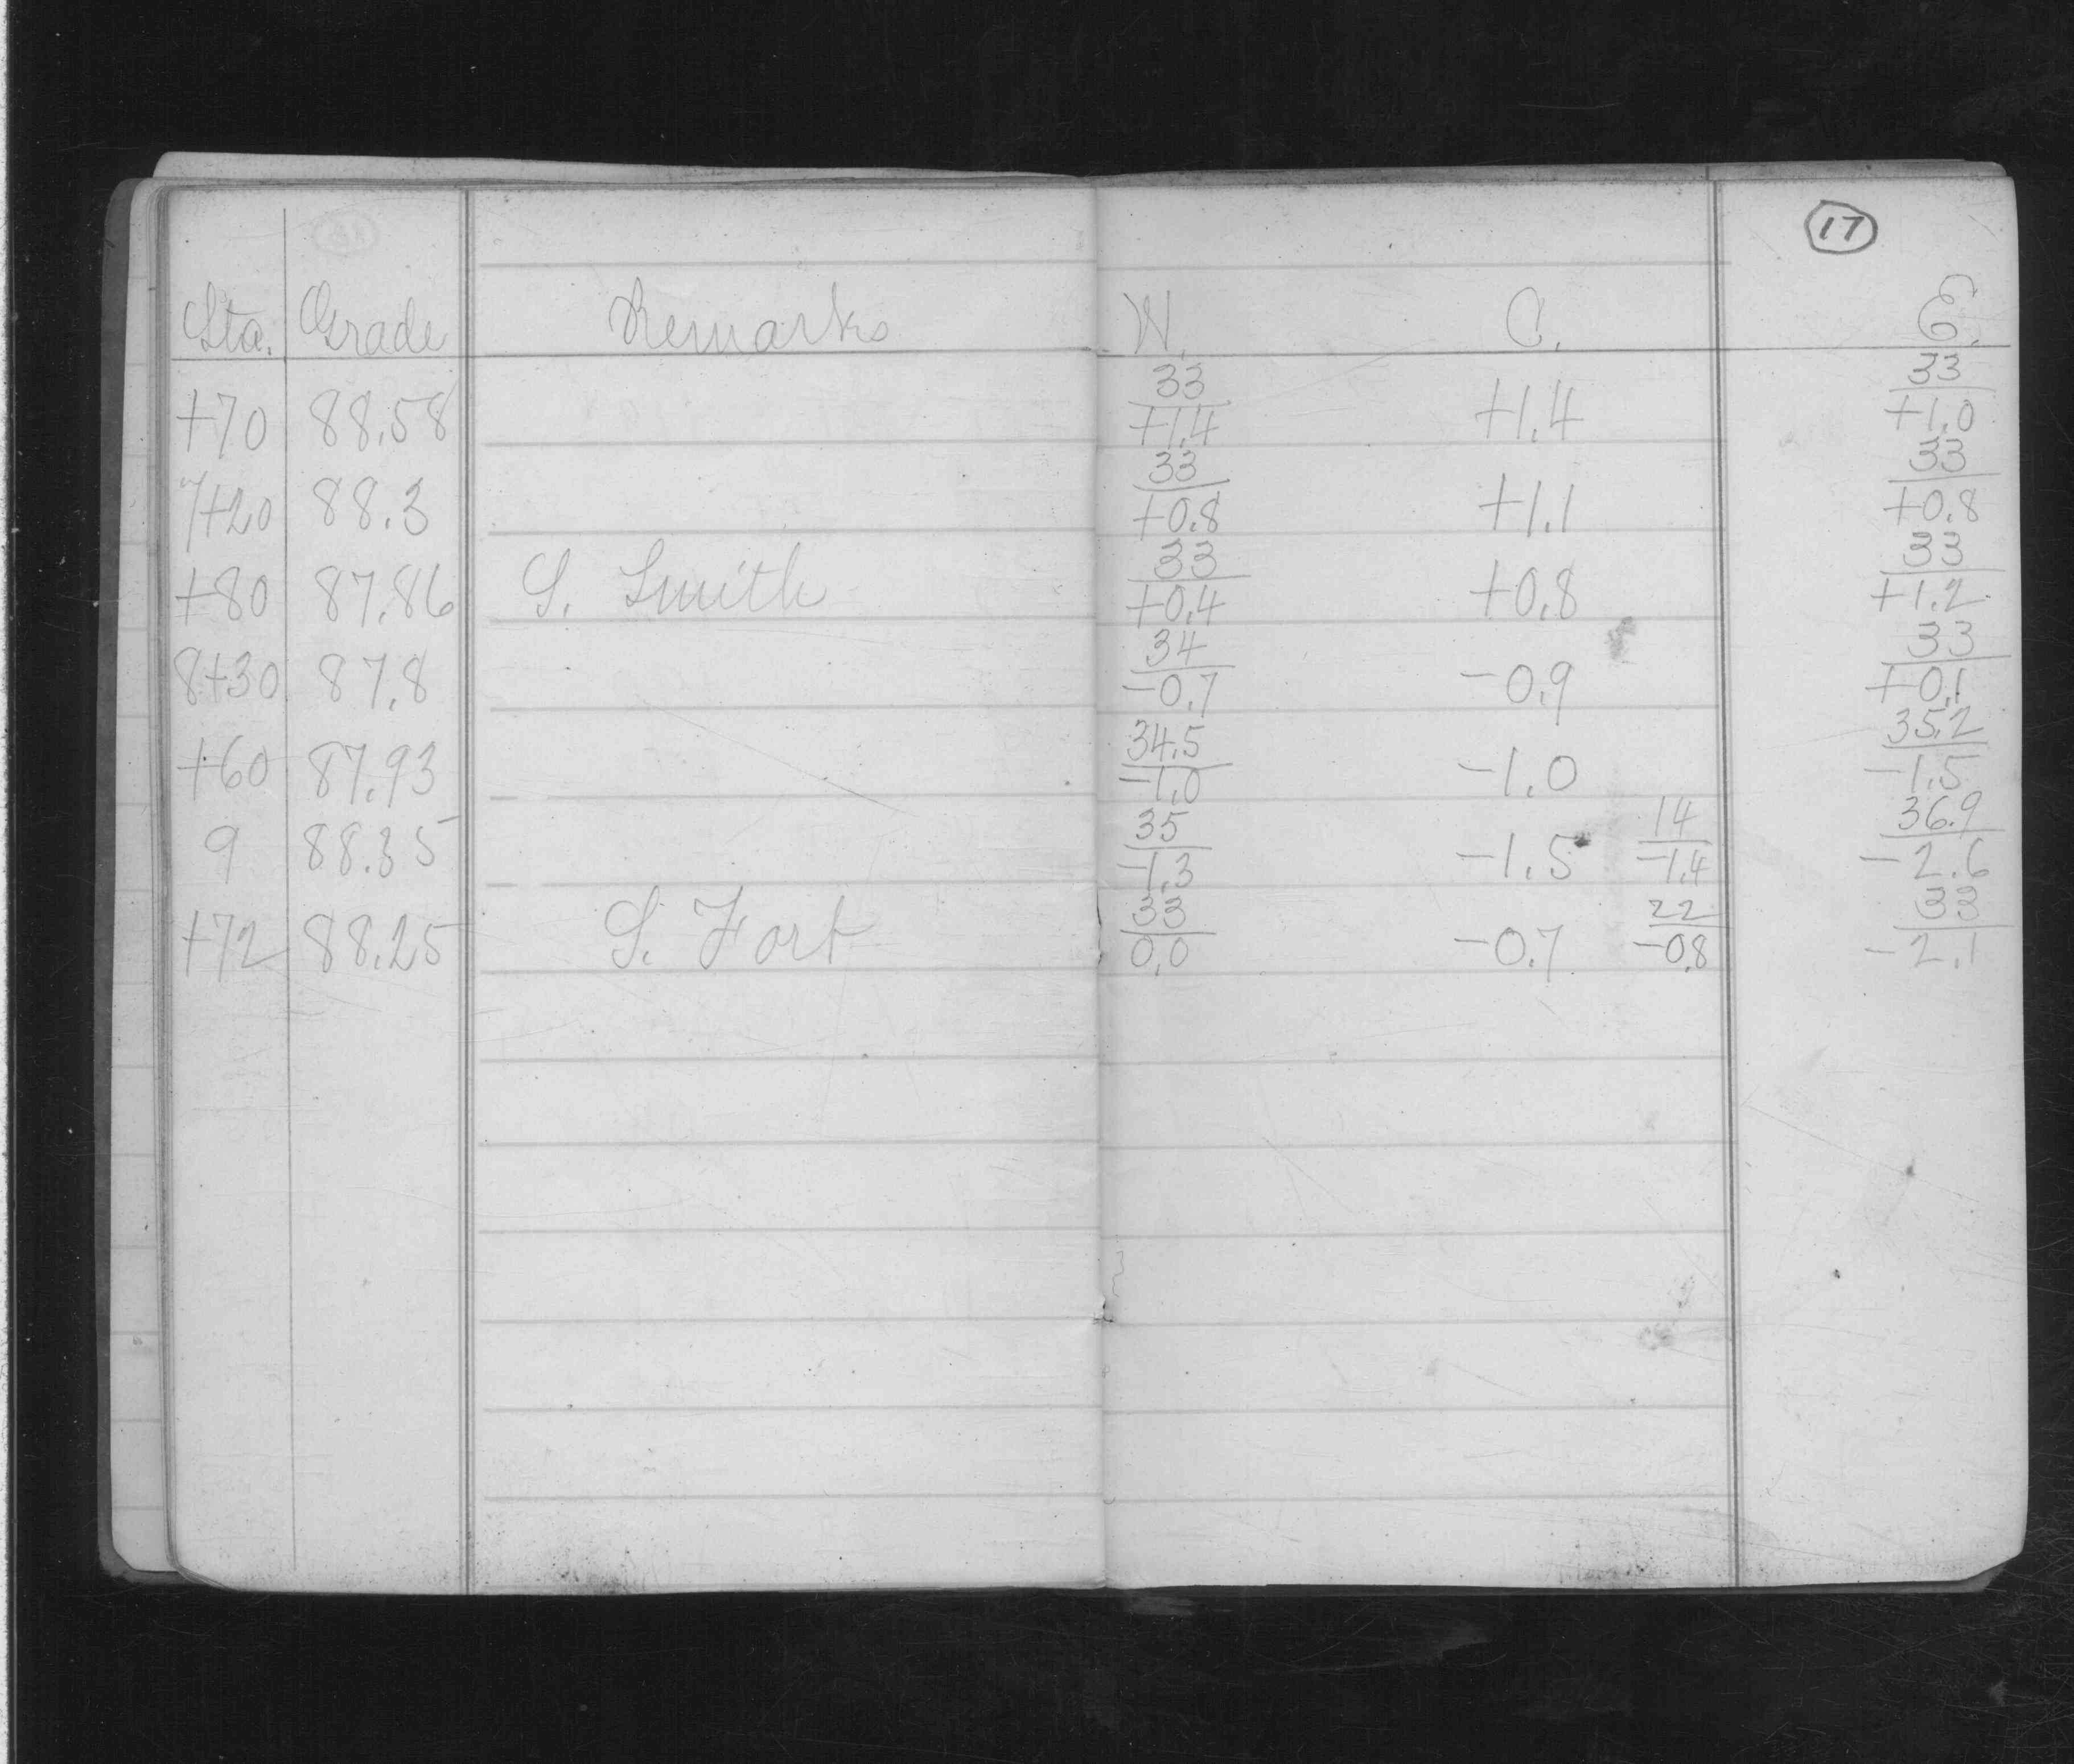 17
Sta. Grade Remarks W. C. E.
33 33
+70 88.58 +1.4 +1.4 +1.0
33 33
7+20 88.3 +0.8 +1.1 +0.8
33 33
+80 87.86 S. Smith +0.4 +0.8 +1.2
34 33
8+30 87.8 -0.7 -0.9 +0.1
34.5 35.2
+60 87.93 -1.0 -1.0 -1.5
35 14 36.9
9 88.35 -1.3 -1.5 -1.4 -2.6
33 22 33
+72 88.25 S. Fort 0.0 -0.7 -0.8 -2.1